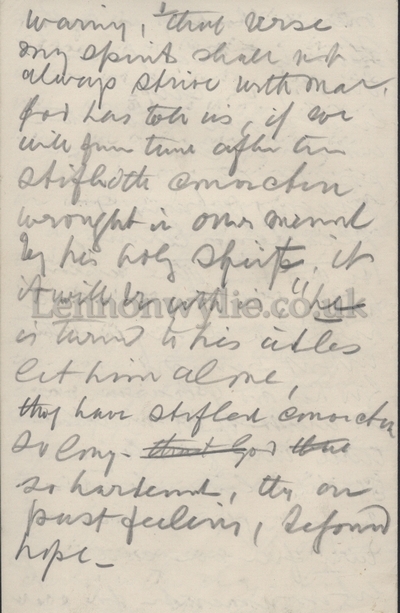 warning, "that verse
my spirit shall not
always strive with man,
God has told us, if we
will from time after time
stifleth conviction
wrought in ones mind
by his holy Spirit, it
it will be with us, "he
is turned to his idles
let him alone,
they have stifled conviction
so long - that God that
so hardened, they are
past feeling, beyond
hope -
Lennonwylie.co.uk